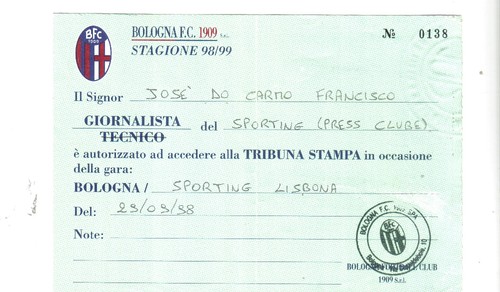 BFC
1909
BOLOGNA F.C. 1909 s.r.l.
STAGIONE 98/99
№ 0138
Il Signor JOSÈ DO CARMO FRANCISCO
GIORNALISTA del SPORTING (PRESS CLUBE)
TECNICO
è autorizzato ad accedere alla TRIBUNA STAMPA in occasione
della gara:
BOLOGNA / SPORTING LISBONA
Del: 29/09/98
Note:
BOLOGNA F.C. 1909 SPA
BFC
BOLOGNA FOOTBALL CLUB
1909 s.r.l.